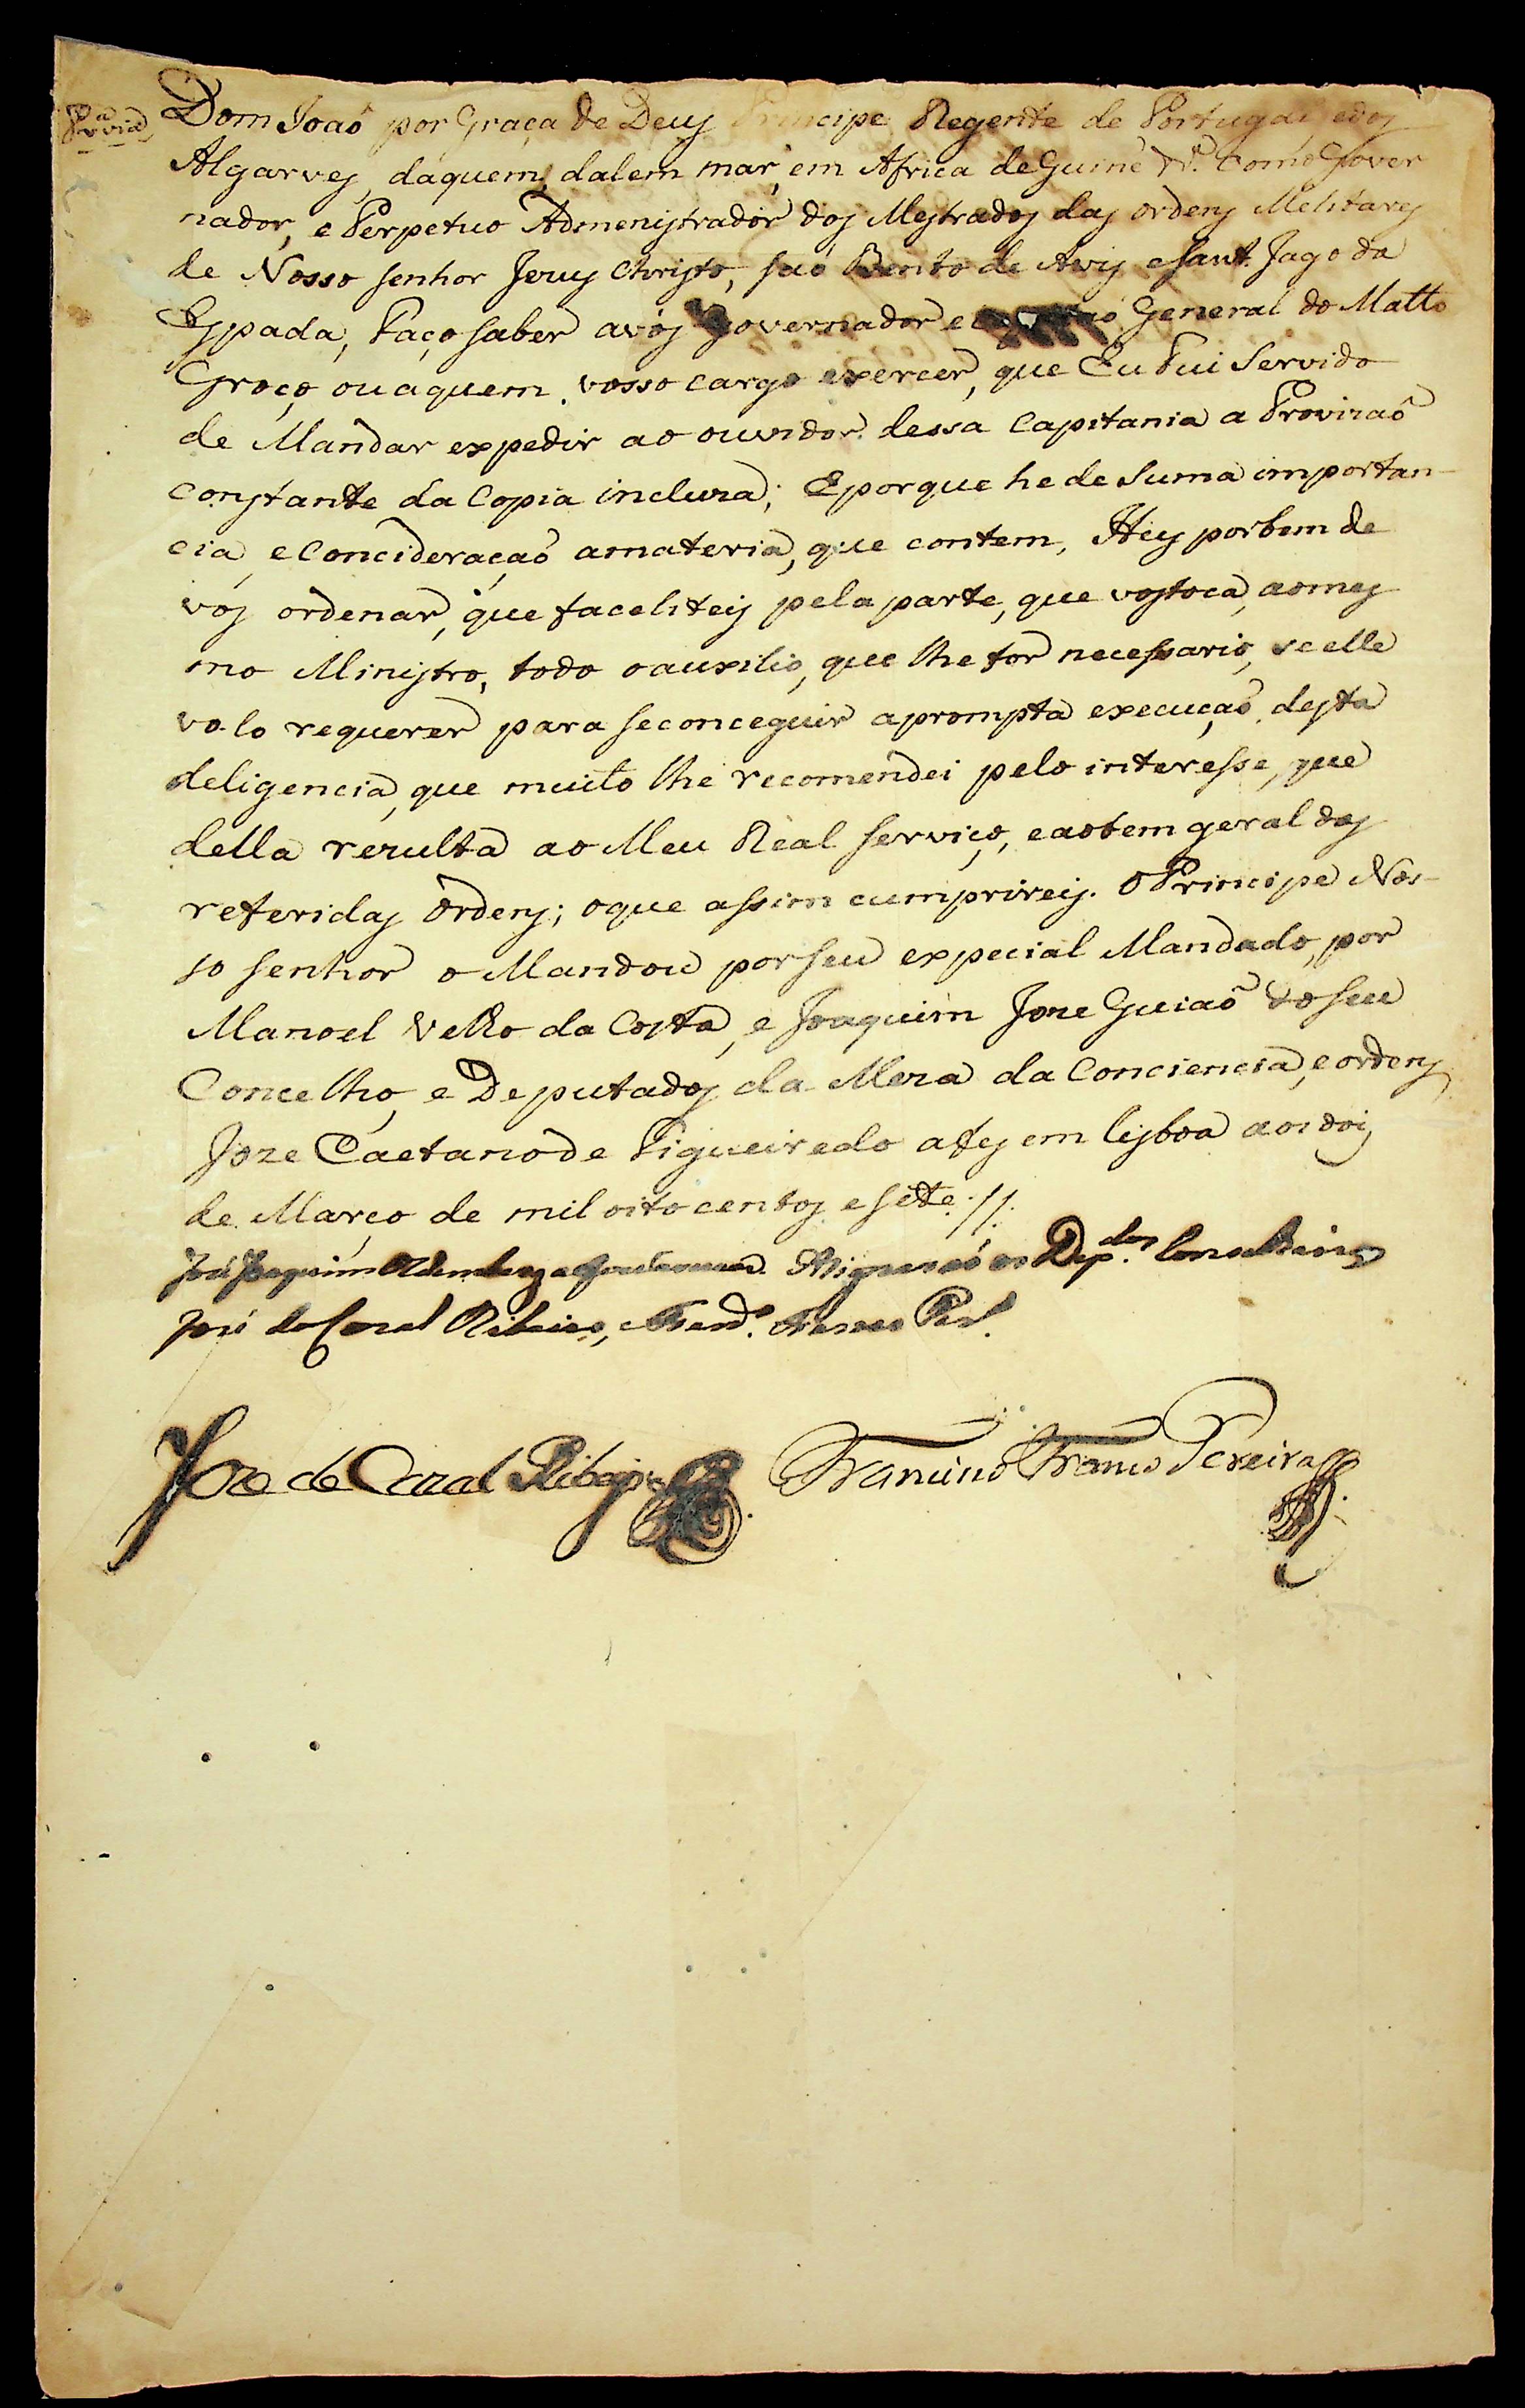 Pr.ª via
Dom Joaõ por Graça de Deus Principe Regente de Portugal, e dos
Algarves, daquem, dalem mar, em Africa de Guiné &ª. Como Gover
nador, e Perpetuo Admenistrador dos Mestrados das ordens Melitares
de Nosso senhor Jezus Christo, saõ Bento de Aviz e sant Jago da
Espada, Faço saber a vós Governador e General do Matto
Groço, ou a quem vosso cargo exercer, que Eu Fui Servido
de Mandar expedir ao ouvidor dessa Capitania a Provizaõ
constante da Copia incluza; E porque he de suma importan-
cia, e Concideraçaõ a materia, que contem, Hey por bem de
vos ordenar, que faceliteis pela parte, que vos toca, ao mes
mo Ministro, todo o auxilio, que lhe for necessario, se elle
vo-lo requerer para se conceguir a prompta execuçaõ desta
deligencia, que muito lhe recomendei pelo interesse, que
della rezulta ao Meu Real serviço, e ao bem geral das
referidas ordens; o que assim cumprireis. O Principe Nos-
so senhor o Mandou por seu expecial Mandado, por
Manoel Velho da Costa, e Joaquim Joze Guiaõ do seu
Concelho, e Deputados da Meza da Conciencia, e ordens
Joze Caetano de Figueiredo a fez em lisboa aos dois
de Março de mil oito centos e sete. //.
José Joaquim Oldemberg a fez Asignaraõ os Dep.dos
José do Cazal Ribeiro, e Franco Per.ª
Joze do Cazal Ribeiro Francisco Franco Pereira